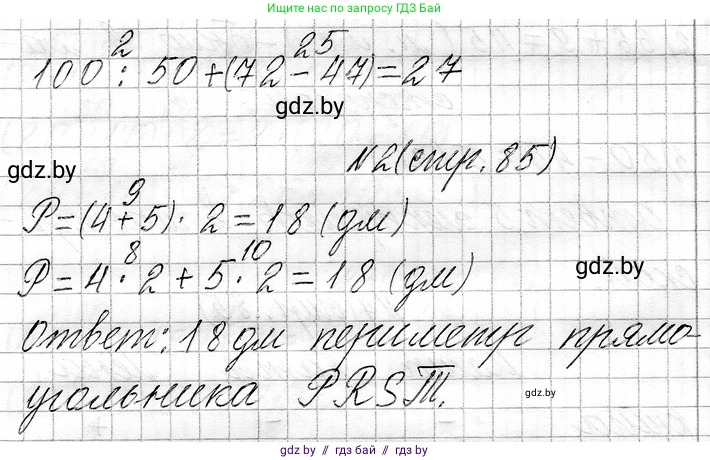 Ищите нас по запросу ГДЗ Бай
2 25
100 : 50 + (72 - 47) = 27
gdz.by
№2 (стр. 85)
gdz.by
9
P = (4 + 5) · 2 = 18 (дм)
8 10
P = 4 · 2 + 5 · 2 = 18 (дм)
gdz.by
Ответ: 18 дм периметр прямо-
угольника PRST.
gdz.by
gdz.by // гдз бай // gdz.by